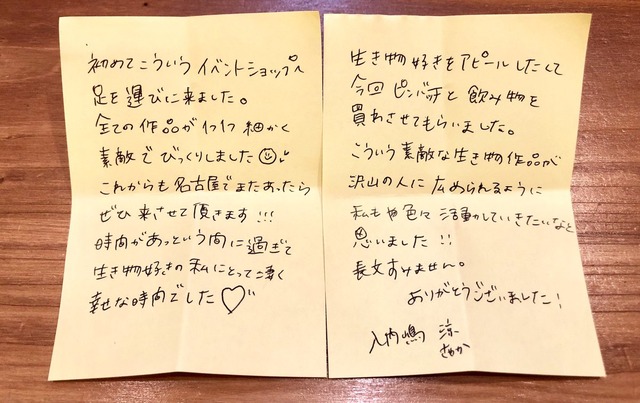 初めてこういうイベントショップへ
足を運びに来ました。
全ての作品が1つ1つ細かく
素敵でびっくりしました
これからも名古屋でまたあったら
ぜひ来させて頂きます!!!
時間があっという間に過ぎて
生き物好きの私にとって凄く
幸せな時間でした♡
生き物好きをアピールしたくて
今回ピンバッチと飲み物を
買わさせてもらいました。
こういう素敵な生き物作品が
沢山の人に広められるように
私も色々活動していきたいなと
思いました!!
長文すみません。
ありがとうございました!
入内嶋 涼
さやか